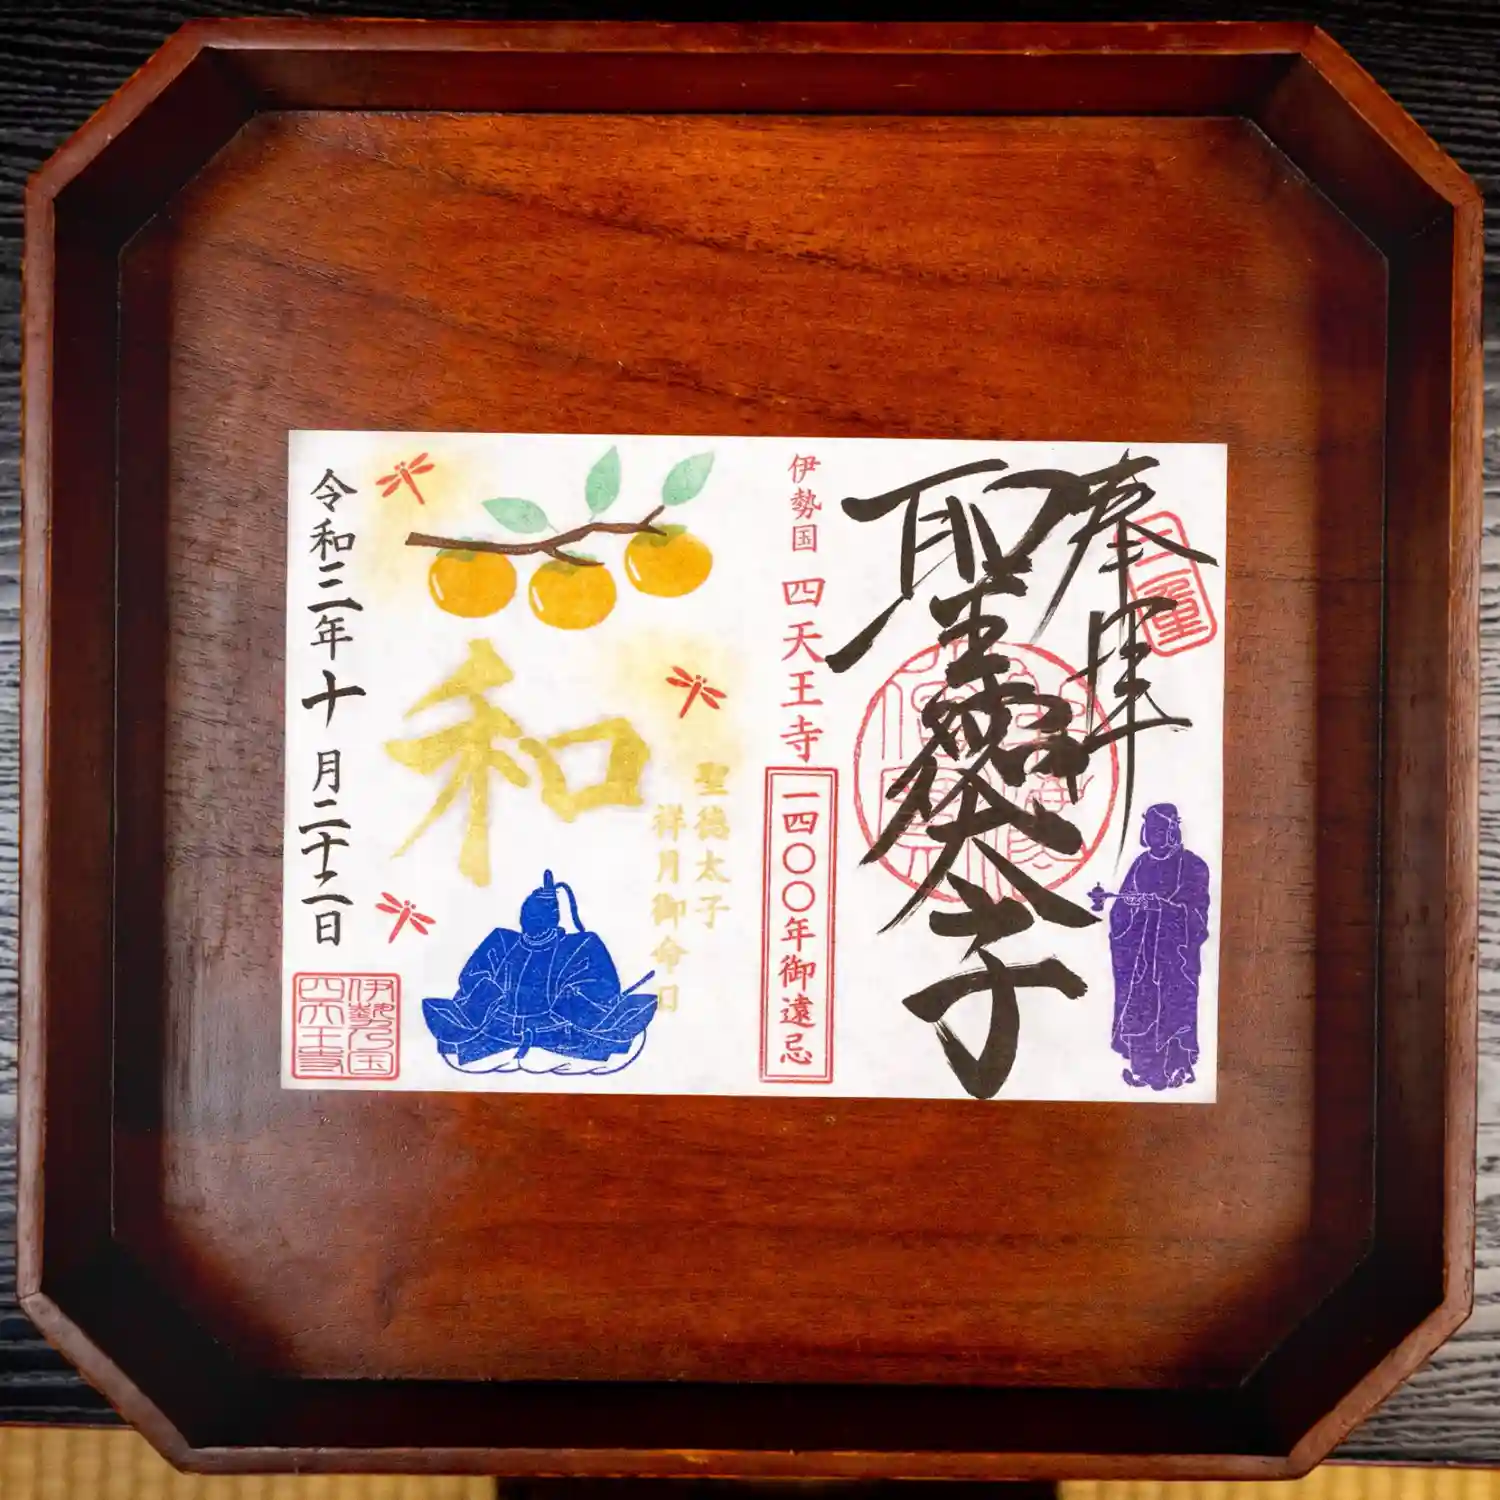 奉拝
聖徳太子
伊勢国 四天王寺
一四〇〇年御遠忌
聖徳太子
祥月御命日
和
令和三年十月二十二日
伊勢乃国
四天王寺